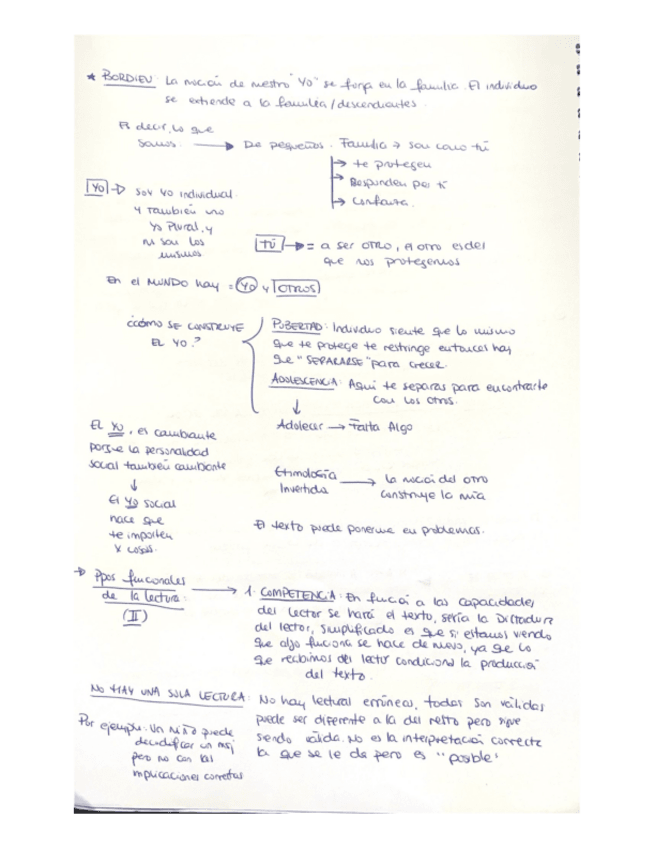 * BORDIEU: La noción de nuestro "Yo" se forja en la familia. El individuo
se extiende a la familia/descendientes.
Es decir, lo que
somos. → De pequeños. Familia → son como tú
→ te protegen
→ Responden por ti
→ Confianza.
YO → soy yo individual.
y también uno
yo plural, y
no son los
mismos
TÚ → = a ser OTRO, el otro es del
que nos protegemos
En el MUNDO hay = YO y OTROS
¿CÓMO SE CONSTRUYE
EL YO?
PUBERTAD: Individuo siente que lo mismo
que te protege te restringe entonces hay
que "SEPARARSE" para crecer.
ADOLESCENCIA: Aquí te separas para encontrarte
con los otros.
↓
Adolecer → Falta Algo
El Yo, es cambiante
porque la personalidad
social también cambiante
↓
El Yo social
hace que
te importen
x cosas.
Etimología
Invertida → La noción del otro
construye la mía
El texto puede ponerme en problemas.
→ Ppos funcionales
de la lectura:
(II)
→ 1. COMPETENCIA: En función a las capacidades
del lector se hará el texto, sería la Dictadura
del lector, simplificado es que si estamos viendo
que algo funciona se hace de nuevo, ya que lo
que recibimos del lector condiciona la producción
del texto.
NO HAY UNA SOLA LECTURA: No hay lecturas erróneas, todas son válidas
puede ser diferente a la del resto pero sigue
siendo válida. No es la interpretación correcta
la que se le da pero es "posible"
Por ejemplo: Un niño puede
decodificar un msj
pero no con las
implicaciones correctas